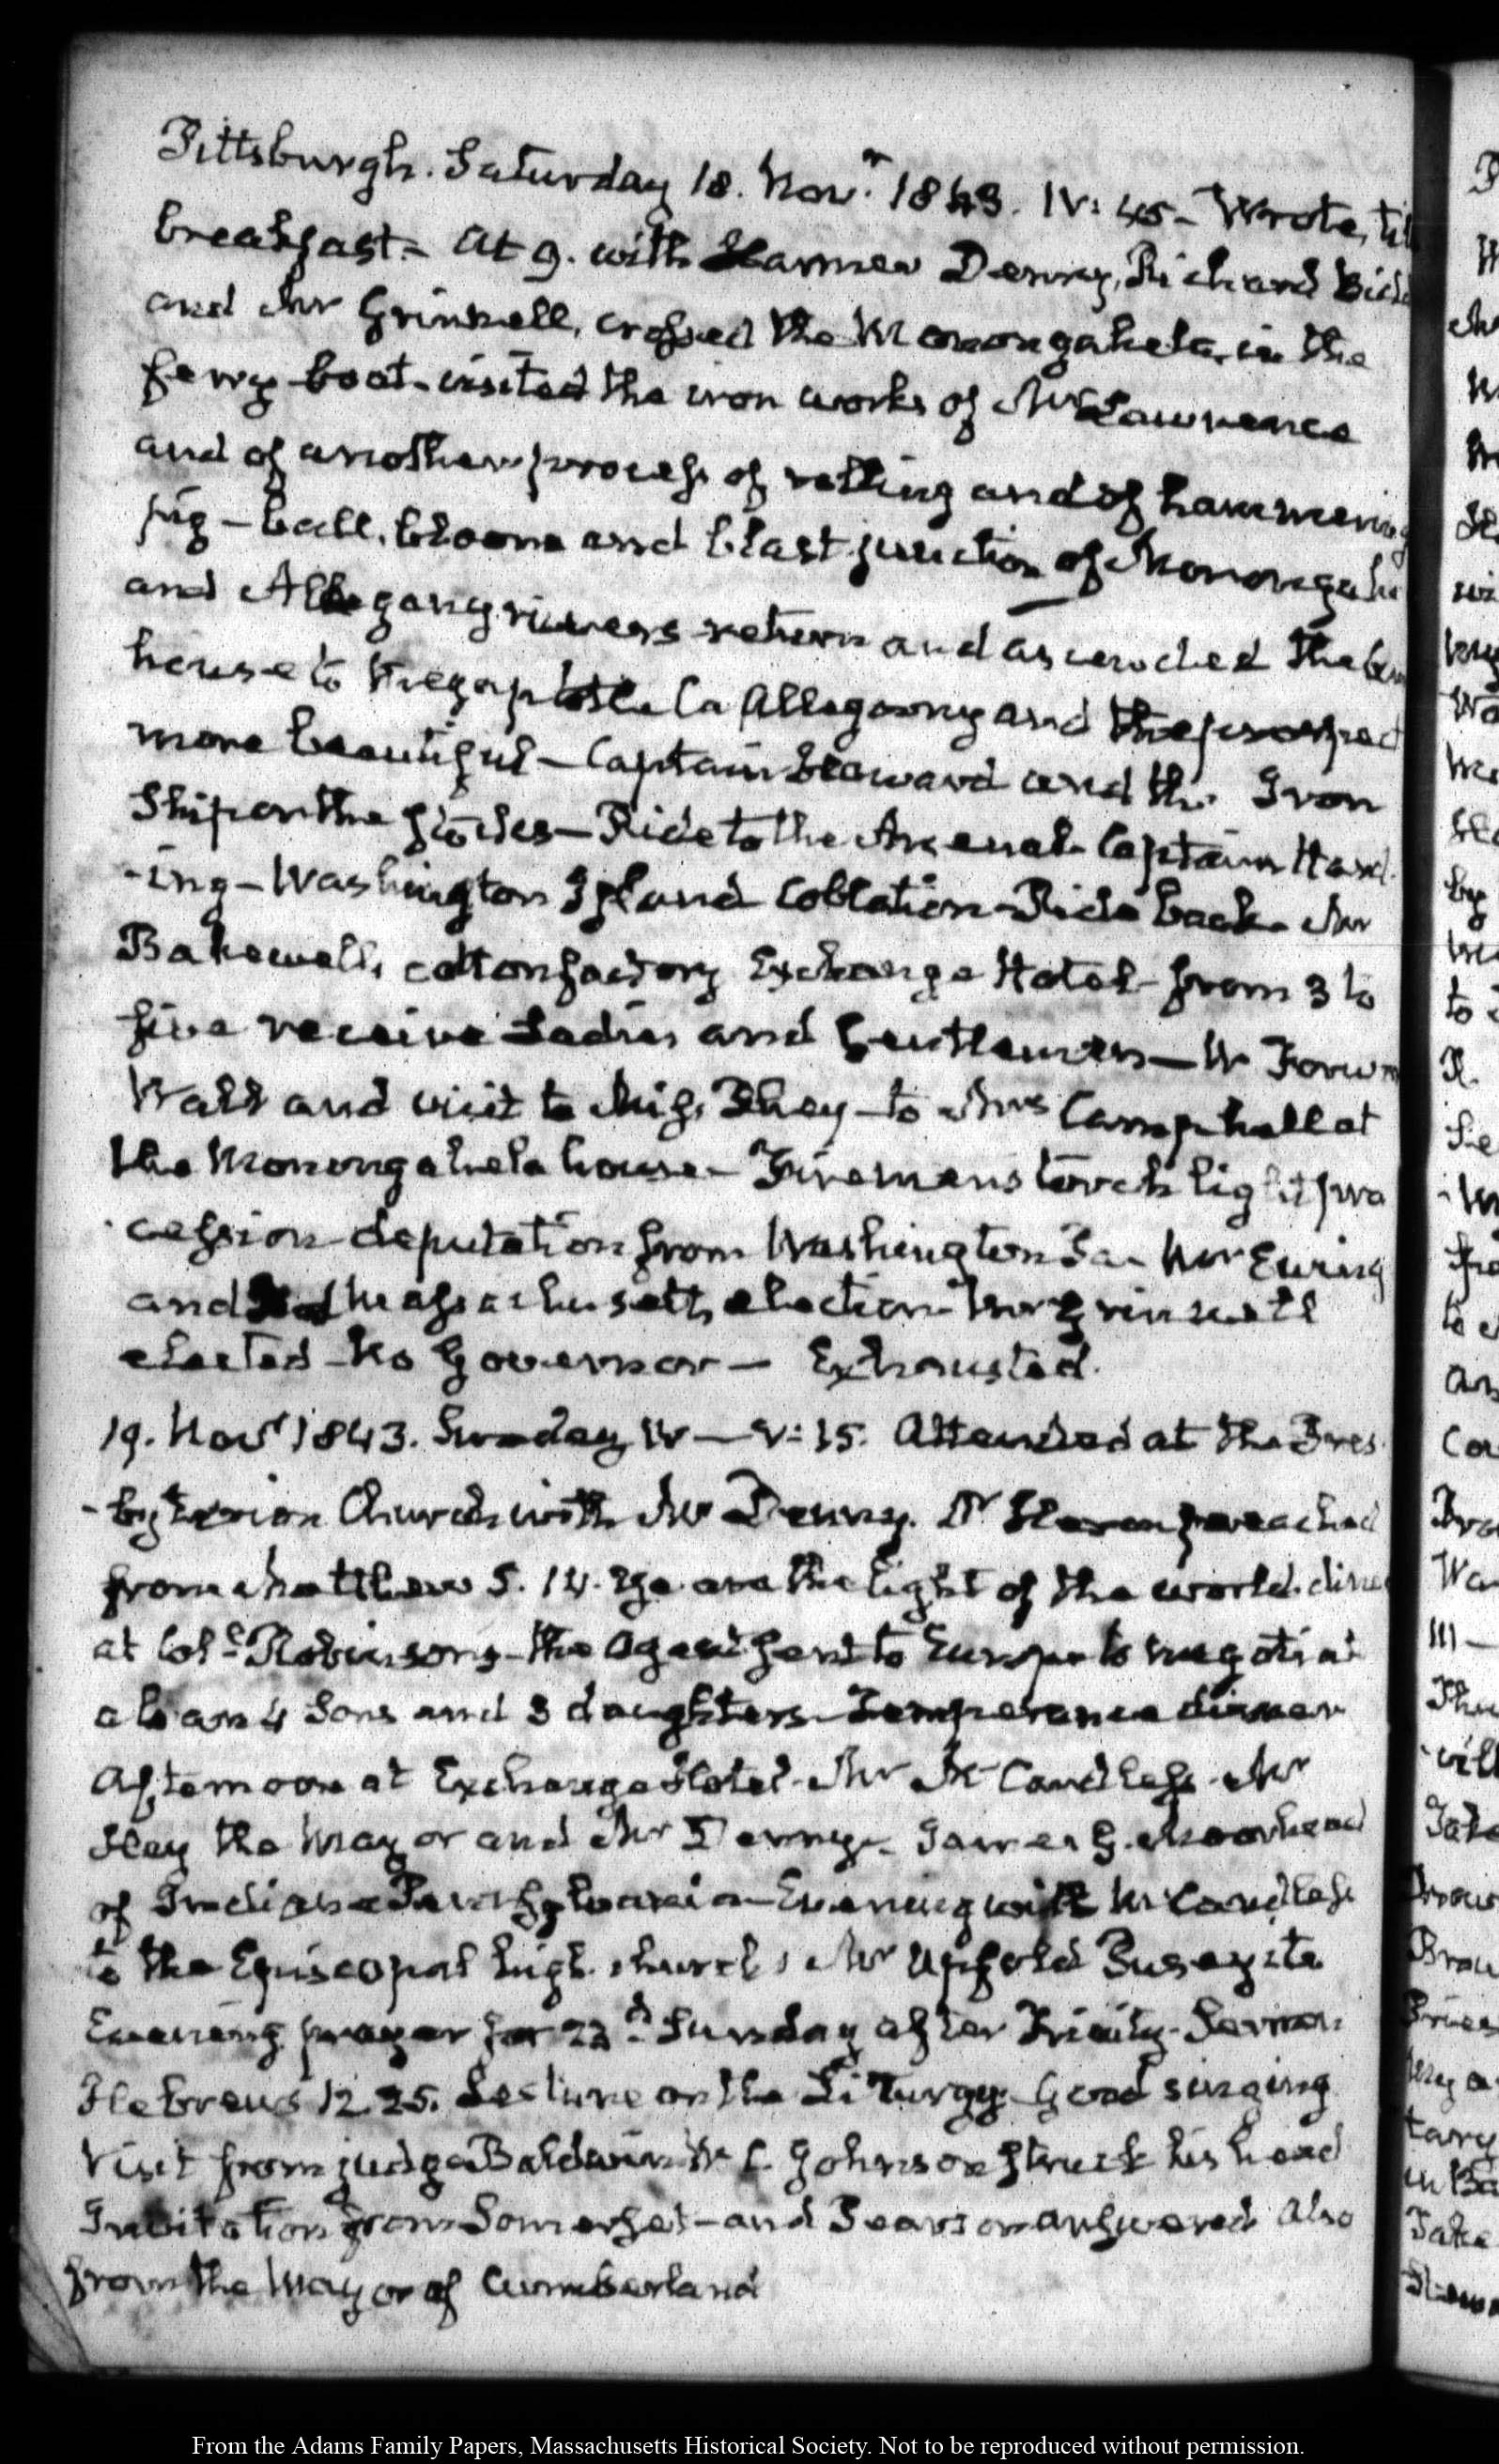 Pittsburgh. Saturday 18. Novr. 1843. IV: 45 - Wrote, till
breakfast - At 9. with Harmar Denny, Richard Bidd
and Mr Grinnell, crossed the Monongahela, in the
ferry-boat - visited the iron works of Mr Lawrence
and of another process of rolling and of hammering
pig - ball, bloom and blast junction of Monongahe
and Allegany rivers return and ascended the
house to the Allegany and the prospect
more beautiful - Captain and the Iron
Ship on the Stocks - Ride to the Arsenal - Captain Hard
-ing - Washington Island Collation - Ride back - Mr
Bakewell's cotton factory Exchange Hotel - from 3 to
five receive Ladies and Gentlemen - W Forw
Walk and visit to Miss - to Mrs Camphell at
the Monongahela house - Firemens torch light pro
cession - deputation from Washington Pa - Mr Ewing
and Massachusetts election - Mr Grinnell
elected - No Governor - Exhausted.
19. Novr 1843. Sunday IV - V: 15. Attended at the Pres
-byterian Church with Mr Denny. Dr Heron preached
from Matthew 5. 14. Ye are the light of the world. dine
at Col. Robinson's - the Agent sent to Europe to negotiat
a loan 4 Sons and 3 daughters - Temperance dinner
Afternoon at Exchange Hotel - Mr McCandless - Mr
Hay the Mayor and Mr Denny - James G. Moorhead
of Indiana Pennsylvania - Evening with McCandless
to the Episcopal high church, Mr Upfold Puseyite
Evening prayer for 23d Sunday after Trinity - Sermon
Hebrews 12. 25. Lecture on the Liturgy - Good singing
Visit from judge Baldwin W C. Johnson struck his head
Invitation from Somerset - and Pearson answered also
from the Mayor of Cumberland
From the Adams Family Papers, Massachusetts Historical Society. Not to be reproduced without permission.